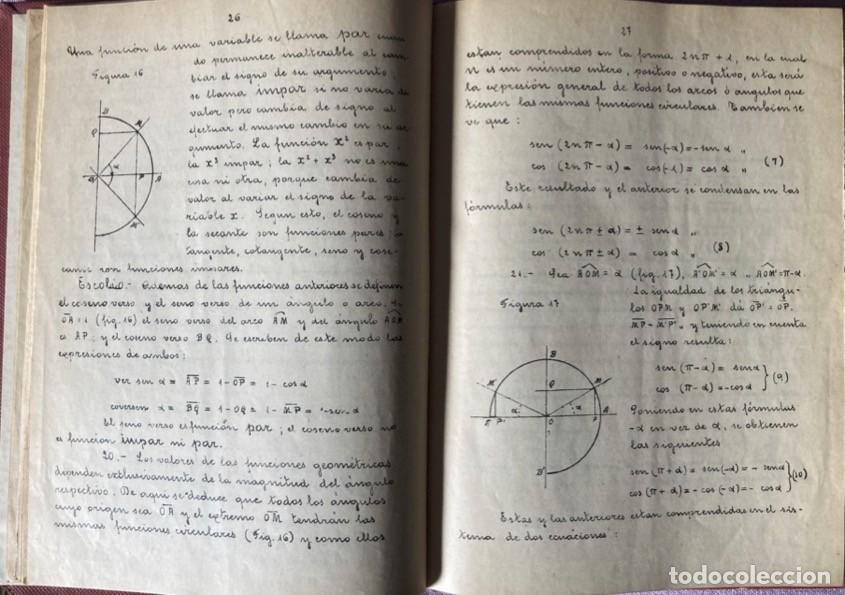 26
Una función de una variable se llama par cuan
do permanece inalterable al cam
Figura 16
biar el signo de su argumento;
se llama impar si no varia de
valor pero cambia de signo al
efectuar el mismo cambio en su ar
gumento. La función x² es par;
la x³ impar; la x² + x³ no es una
cosa ni otra, porque cambia de
valor al variar el signo de la va-
riable x. Segun esto, el coseno y
la secante son funciones pares; la
tangente, cotangente, seno y cose-
cante son funciones impares.
Escolio.- Además de las funciones anteriores se definen
el coseno verso y el seno verso de un ángulo o arco. Si
OA=1 (fig. 16) el seno verso del arco AM y del ángulo AOM
es AP; y el coseno verso BQ. Se escriben de este modo las
expresiones de ambos:
ver sen α = AP = 1-OP = 1- cosα
coversen α = BQ = 1-OQ = 1-MP = 1-sen α
El seno verso es función par; el coseno verso no
es funcion impar ni par.
20.- Los valores de las funciones geométricas
dependen exclusivamente de la magnitud del ángulo
respectivo. De aqui se deduce que todos los ángulos
cuyo origen sea OA y el extremo OM tendrán las
mismas funciones circulares (Fig. 16) y como ellos
B
Q
M
α
O
P
A
M'
27
estan comprendidos en la forma 2nπ + α, en la cual
n es un número entero, positivo o negativo, esta será
la expresión general de todos los arcos ó angulos que
tienen las mismas funciones circulares. Tambien se
ve que:
sen (2nπ-α) = sen(-α) = -sen α „
cos (2nπ-α) = cos(-α) = cos α „ (7)
Este resultado y el anterior se condensan en las
fórmulas:
sen (2nπ±α) = ± sen α „
cos (2nπ±α) = cosα „ (8)
21.- Sea AOM=α (fig. 17), A'OM'=α „ AOM'=π-α.
La igualdad de los triángu-
Figura 17
los OPM y OP'M' dá OP'=OP.
MP=M'P' „ y teniendo en cuenta
el signo resulta:
sen (π-α) = senα
cos (π-α) = -cosα (9)
Poniendo en estas fórmulas
-α en vez de α, se obtienen
las siguientes
sen (π+α) = sen(-α) = - senα
cos (π+α) = -cos(-α) = - cosα (10)
Estas y las anteriores estan comprendidas en el sis-
tema de dos ecuaciones:
B
Q
M
α
α
P'
O
P
A
B'
todocoleccion